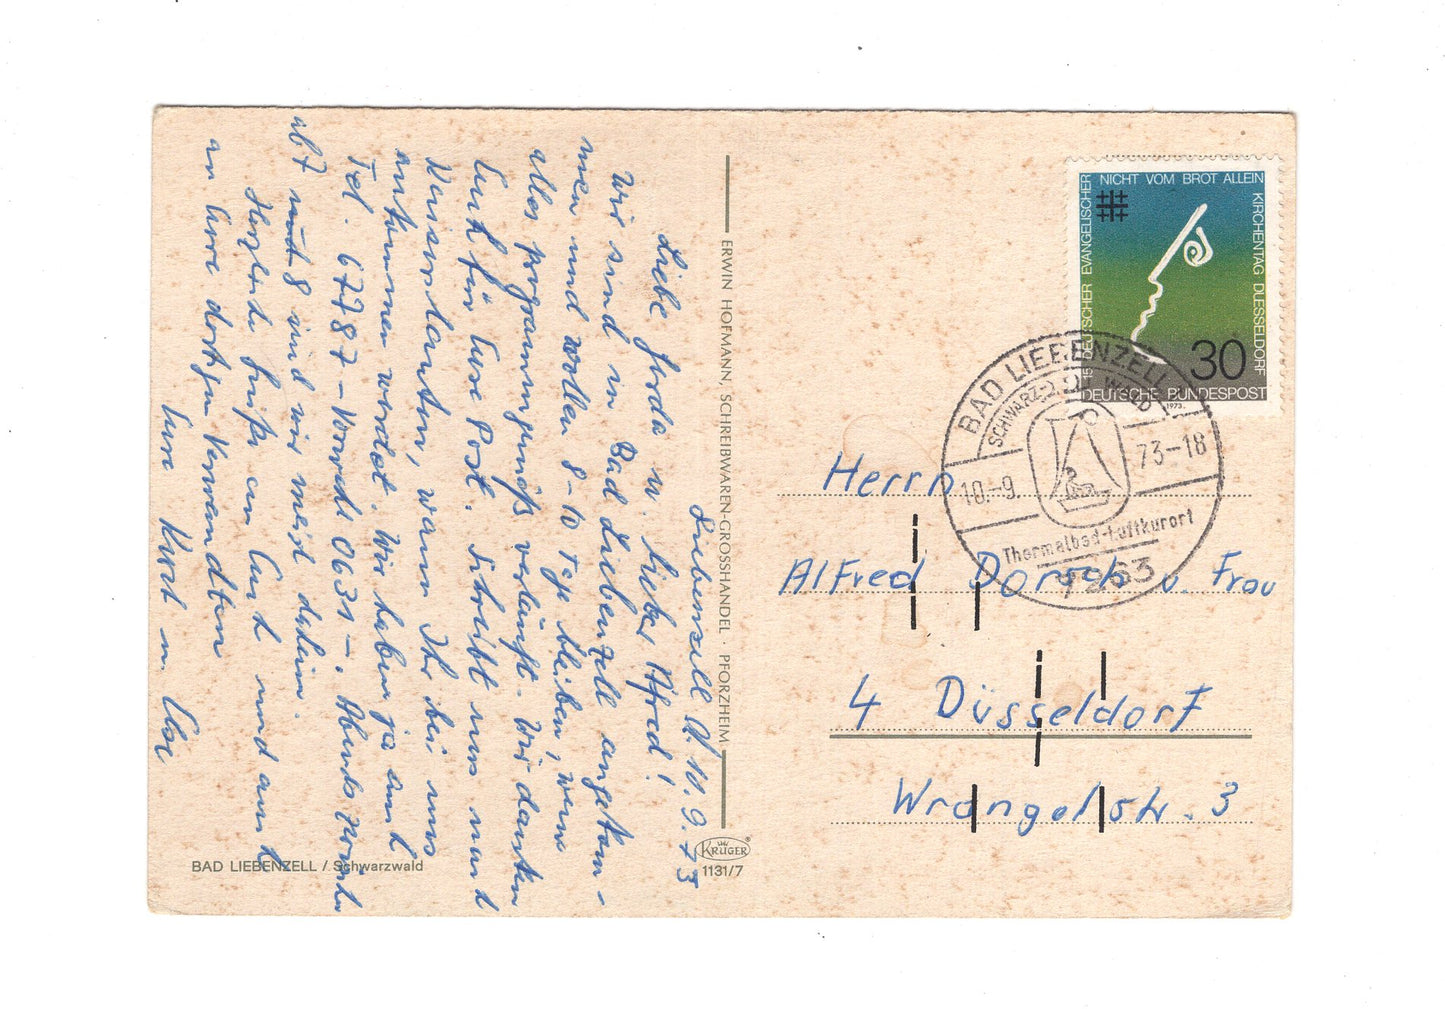 Liebenzell d. 10.9.73
Liebe Gerda u. lieber Alfred!
Wir sind in Bad Liebenzell angekom-
men und wollen 8-10 Tage bleiben, wenn
alles programmgemäß verläuft. Wir danken
Euch für Eure Post. Schreibt uns nund
Kaiserslautern, wann Ihr bei uns
ankommen werdet. Wir haben ja auch
Tel. 67787 - Vorwahl 0631 -. Abends
ab 7 und 8 sind wir meist daheim.
Herzliche Grüße an Euch und auch
an Eure dortigen Verwandten
Eure Kurt u. Else
BAD LIEBENZELL / Schwarzwald
ERWIN HOFMANN, SCHREIBWAREN-GROSSHANDEL · PFORZHEIM
KRÜGER ®
1131/7
15. DEUTSCHER EVANGELISCHER
NICHT VOM BROT ALLEIN
KIRCHENTAG DUESSELDORF
30
DEUTSCHE BUNDESPOST
1973
BAD LIEBENZELL
SCHWARZWALD
10.-9. 73-18
Thermalbad-Luftkurort
7263
Herrn
Alfred Dorsch u. Frau
4 Düsseldorf
Wrangelstr. 3